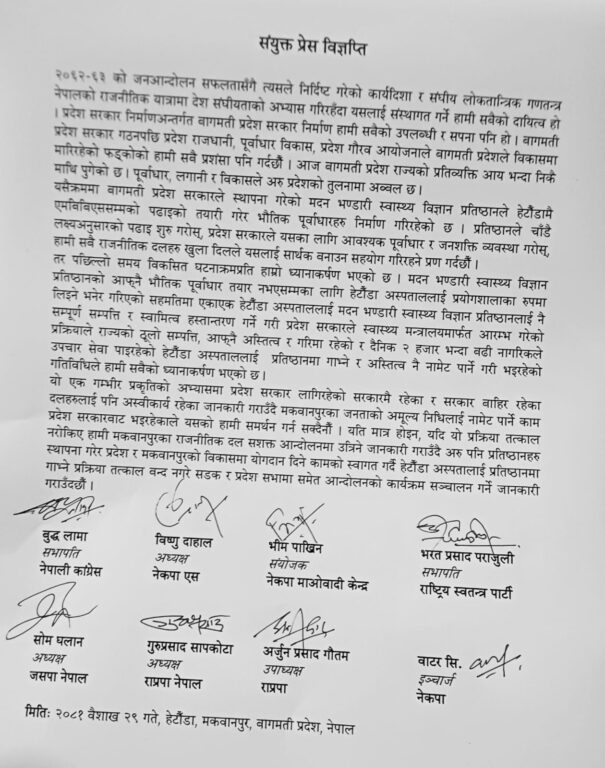 संयुक्त प्रेस विज्ञप्ति
२०६२-६३ को जनआन्दोलन सफलतासँगै त्यसले निर्दिष्ट गरेको कार्यदिशा र संघीय लोकतान्त्रिक गणतन्त्र
नेपालको राजनीतिक यात्रामा देश संघीयताको अभ्यास गरिरहँदा यसलाई संस्थागत गर्ने हामी सबैको दायित्व हो
। प्रदेश सरकार निर्माणअन्तर्गत वागमती प्रदेश सरकार निर्माण हामी सबैको उपलब्धी र सपना पनि हो । वागमती
प्रदेश सरकार गठनपछि प्रदेश राजधानी, पूर्वाधार विकास, प्रदेश गौरव आयोजनाले वागमती प्रदेशले विकासमा
मारिरहेको फड्कोको हामी सबै प्रशंसा पनि गर्दछौं । आज वागमती प्रदेश राज्यको प्रतिव्यक्ति आय भन्दा निकै
माथि पुगेको छ । पूर्वाधार, लगानी र विकासले अरु प्रदेशको तुलनामा अब्बल छ ।
यसैक्रममा वागमती प्रदेश सरकारले स्थापना गरेको मदन भण्डारी स्वास्थ्य विज्ञान प्रतिष्ठानले हेटौंडामै
एमबिबिएससम्मको पढाइको तयारी गरेर भौतिक पूर्वाधारहरु निर्माण गरिरहेको छ । प्रतिष्ठानले चाँडै
लक्ष्यअनुसारको पढाइ शुरु गरोस्, प्रदेश सरकारले यसका लागि आवश्यक पूर्वाधार र जनशक्ति व्यवस्था गरोस्,
हामी सबै राजनीतिक दलहरु खुला दिलले यसलाई सार्थक बनाउन सहयोग गरिरहने प्रण गर्दछौं ।
तर पछिल्लो समय विकसित घटनाक्रमप्रति हाम्रो ध्यानाकर्षण भएको छ । मदन भण्डारी स्वास्थ्य विज्ञान
प्रतिष्ठानको आफ्नै भौतिक पूर्वाधार तयार नभएसम्मका लागि हेटौंडा अस्पताललाई प्रयोगशालाका रुपमा
लिइने भनेर गरिएको सहमतिमा एकाएक हेटौंडा अस्पताललाई मदन भण्डारी स्वास्थ्य विज्ञान प्रतिष्ठानलाई नै
सम्पूर्ण सम्पत्ति र स्वामित्व हस्तान्तरण गर्ने गरी प्रदेश सरकारले स्वास्थ्य मन्त्रालयमार्फत आरम्भ गरेको
प्रक्रियाले राज्यको ठूलो सम्पत्ति, आफ्नै अस्तित्व र गरिमा रहेको र दैनिक २ हजार भन्दा बढी नागरिकले
उपचार सेवा पाइरहेको हेटौंडा अस्पताललाई प्रतिष्ठानमा गाभ्ने र अस्तित्व नै नामेट पार्ने गरी भइरहेको
गतिविधिले हामी सबैको ध्यानाकर्षण भएको छ ।
यो एक गम्भीर प्रकृतिको अभ्यासमा प्रदेश सरकार लागिरहेको सरकारमै रहेका र सरकार बाहिर रहेका
दलहरुलाई पनि अस्वीकार्य रहेका जानकारी गराउँदै मकवानपुरका जनताको अमूल्य निधिलाई नामेट पार्ने काम
प्रदेश सरकारबाट भइरहेकाले यसको हामी समर्थन गर्न सक्दैनौं । यति मात्र होइन, यदि यो प्रक्रिया तत्काल
नरोकिए हामी मकवानपुरका राजनीतिक दल सशक्त आन्दोलनमा उत्रिने जानकारी गराउँदै अरु पनि प्रतिष्ठानहरु
स्थापना गरेर प्रदेश र मकवानपुरको विकासमा योगदान दिने कामको स्वागत गर्दै हेटौंडा अस्पतालाई प्रतिष्ठानमा
गाभ्ने प्रक्रिया तत्काल वन्द नगरे सडक र प्रदेश सभामा समेत आन्दोलनको कार्यक्रम सञ्चालन गर्ने जानकारी
गराउँदछौं ।
बुद्ध लामा
सभापति
नेपाली कांग्रेस
विष्णु दाहाल
अध्यक्ष
नेकपा एस
भीम पाख्रिन
संयोजक
नेकपा माओवादी केन्द्र
भरत प्रसाद पराजुली
सभापति
राष्ट्रिय स्वतन्त्र पार्टी
सोम घलान
अध्यक्ष
जसपा नेपाल
गुरुप्रसाद सापकोटा
अध्यक्ष
राप्रपा नेपाल
अर्जुन प्रसाद गौतम
उपाध्यक्ष
राप्रपा
वाटर सि.
इञ्चार्ज
नेकपा
मितिः २०८१ वैशाख २९ गते, हेटौंडा, मकवानपुर, वागमती प्रदेश, नेपाल